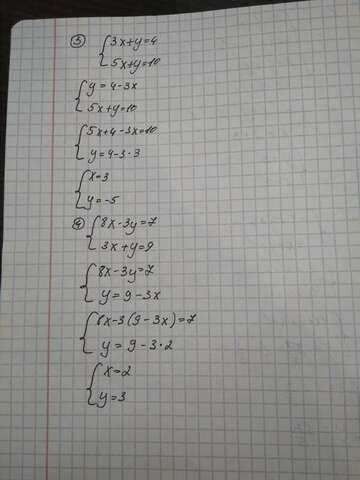 ③ 3x+y=4
5x+y=10
y=4-3x
5x+y=10
5x+4-3x=10
y=4-3·3
x=3
y=-5
④ 8x-3y=7
3x+y=9
8x-3y=7
y=9-3x
8x-3(9-3x)=7
y=9-3·2
x=2
y=3